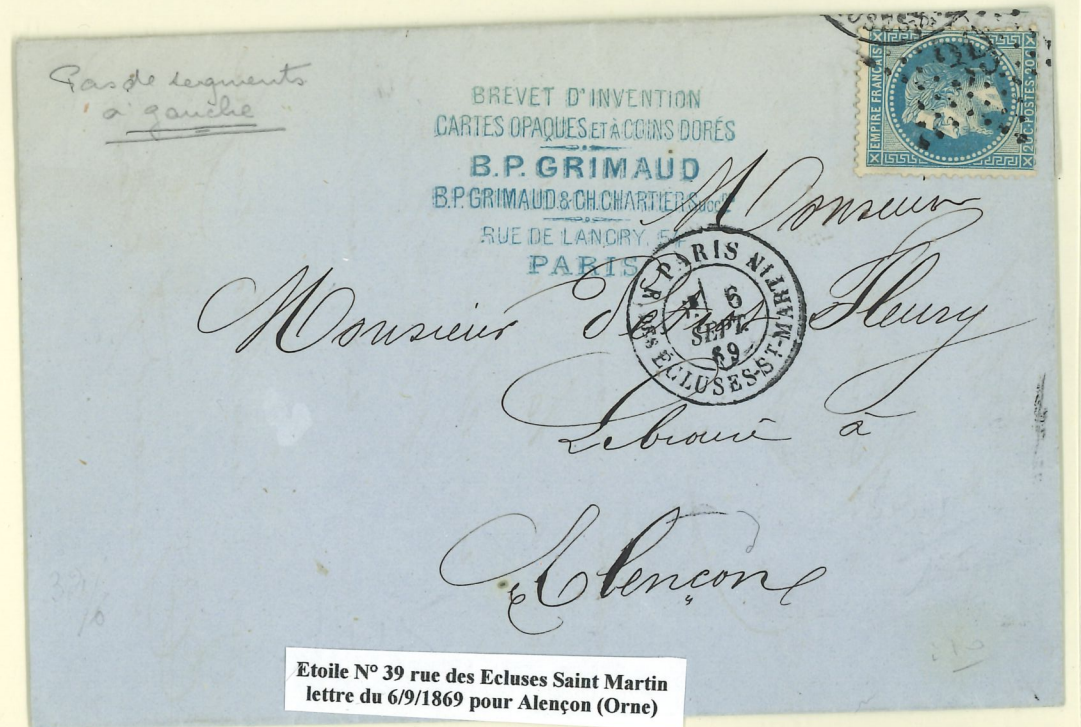 Pas de segments
à gauche
BREVET D'INVENTION
CARTES OPAQUES ET À COINS DORÉS
B.P. GRIMAUD
B.P. GRIMAUD & CH. CHARTIER Succrs
RUE DE LANCRY, 54
PARIS
EMPIRE FRANÇAIS
20C·POSTES·20C
39
Monsieur
Monsieur de Fleury
PARIS
R. DES ÉCLUSES-ST-MARTIN
6
SEPT.
69
Libraire à
Alençon
Etoile N° 39 rue des Ecluses Saint Martin
lettre du 6/9/1869 pour Alençon (Orne)